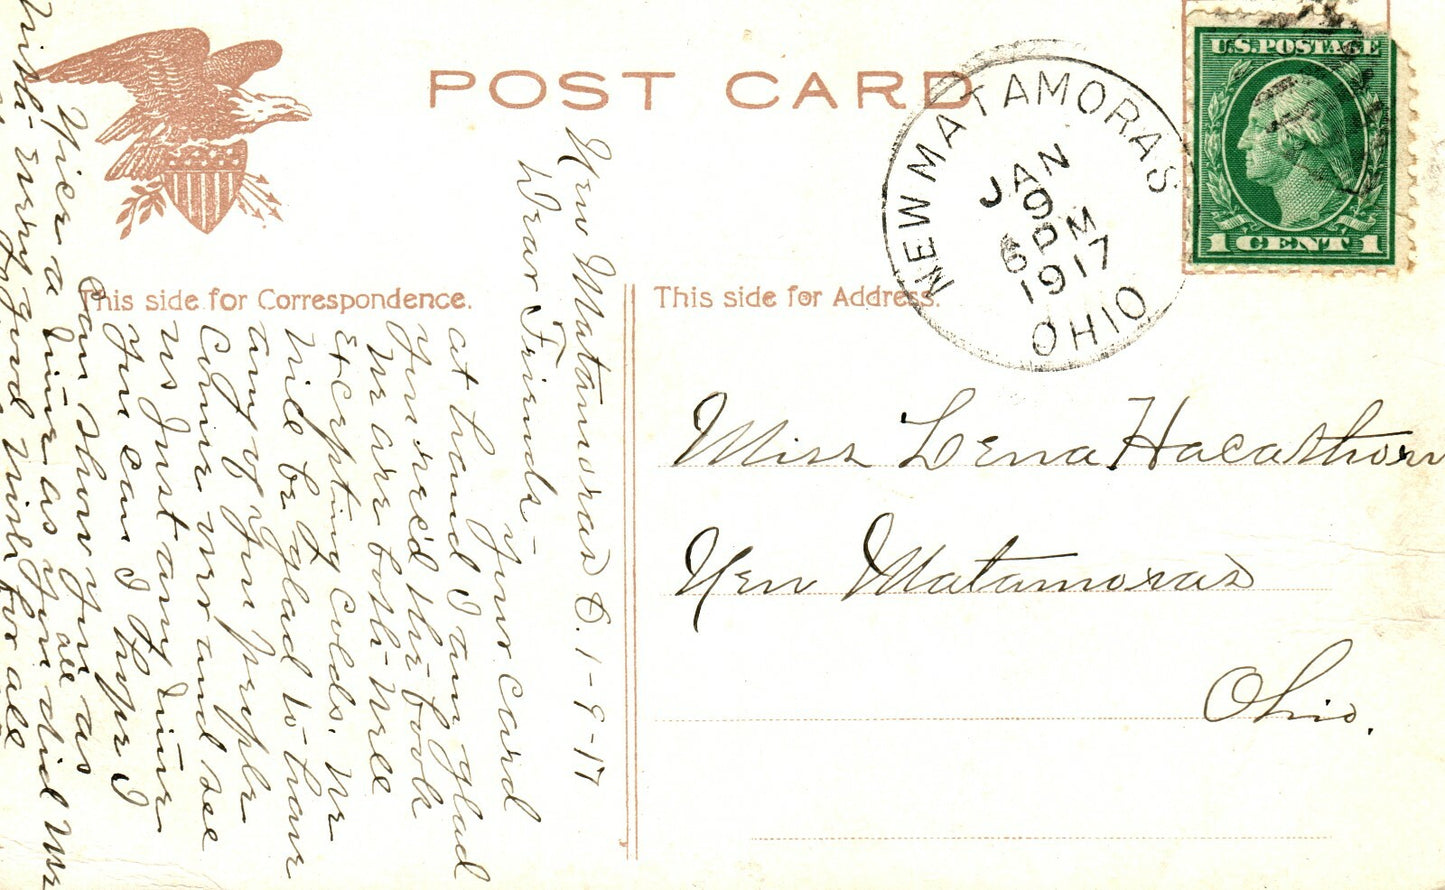 POST CARD
This side for Correspondence.
This side for Address.
NEW MATAMORAS
JAN
9
6 PM
1917
OHIO
U.S. POSTAGE
1 CENT 1
Miss Lena Hacathorn
New Matamoras
Ohio.
New Matamoras O. 1-9-17
Dear Friends-
your card
at hand I am glad
you rec'd the book
we are both well
excepting colds. we
will be glad to have
any of you people
come over and see
us just any time
you can I hope I
can show you as
nice a time as you all did me
with very good wish for all